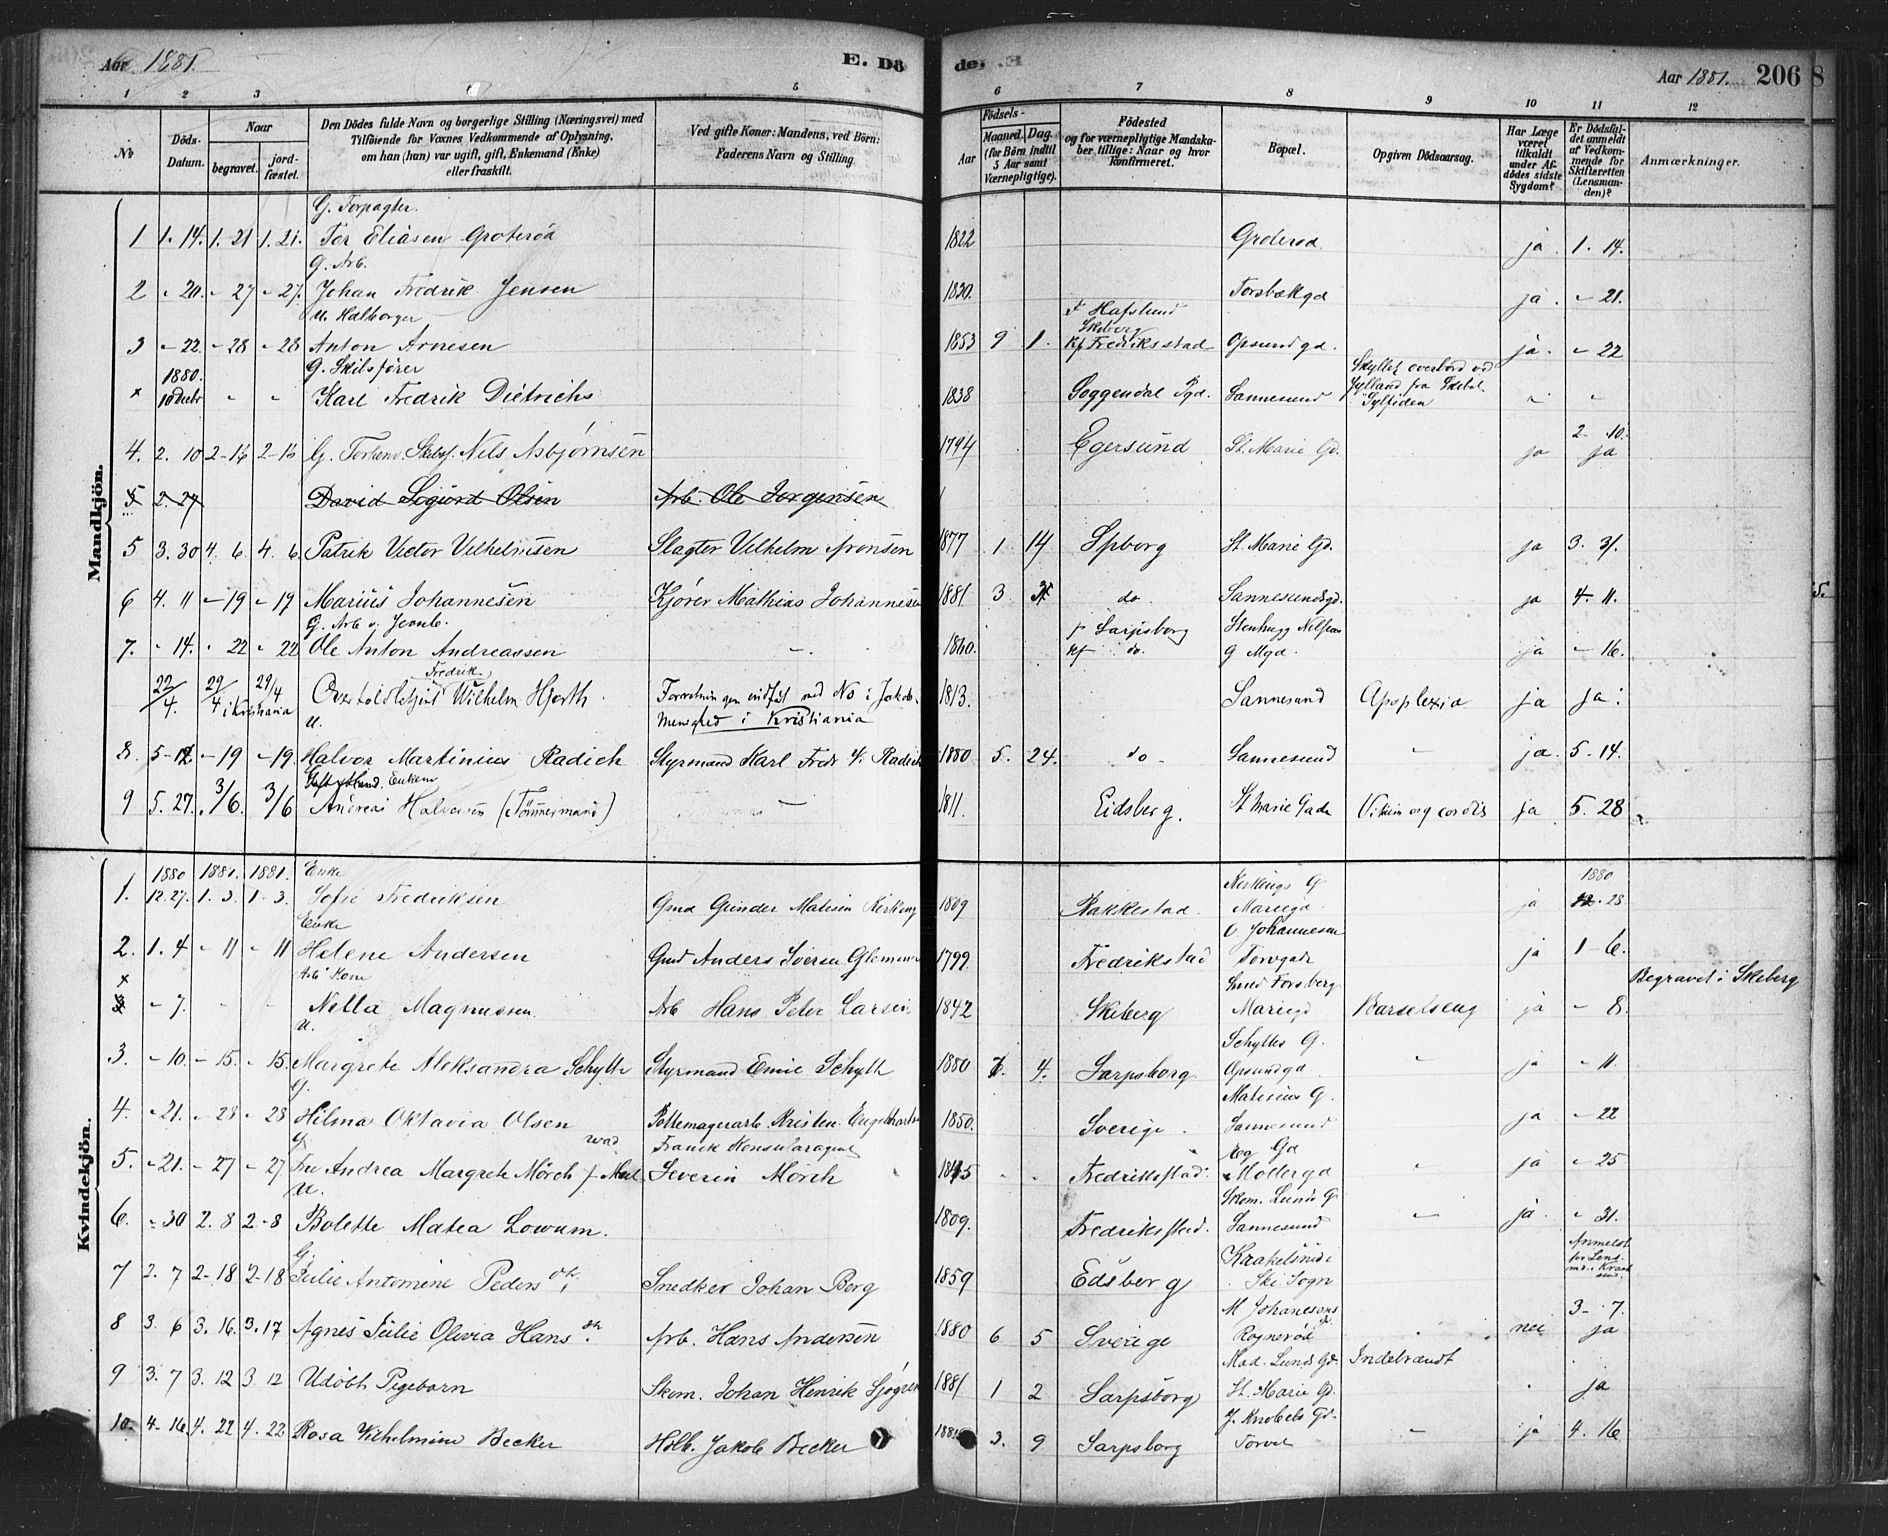 Aar 1881. E. Dö
de. Aar 1881. 206
1 2 3 5 6 7 8 9 10 11 12
No
Döds-Datum.
Naar
begravet.
jord-fæstet.
Den Dödes fulde Navn og borgerlige Stilling (Næringsvei) med
Tilföiende for Voxnes Vedkommende af Oplysning,
om han (hun) var ugift, gift, Enkemand (Enke)
eller fraskilt.
Ved gifte Koner: Mandens, ved Börn:
Faderens Navn og Stilling.
Födsels-
Aar
Maaned. Dag.
(for Börn indtil
5 Aar samt
Værnepligtige).
Födested
og for værnepligtige Mandska-
ber tillige: Naar og hvor
Konfirmeret.
Bopæl.
Opgiven Dödsaarsag.
Har Læge
været
tilkaldt
under Af-
dödes sidste
Sygdom?
Er Dödsfal-
det anmeldt
af Vedkom-
mende for
Skifteretten
(Lensman-
den)?
Anmærkninger.
Mandkjön.
G. Forpagter.
1 1. 14. 1. 21 1. 21. Tor Eliasen Groteröd 1822 Groteröd ja 1. 14.
G. Arb.
2 - 20. - 27 - 27. Johan Fredrik Jensen 1830. Torsbækgd ja - 21.
U. Halborger
F Hafslund
Skeberg
3 - 22. - 28 - 28 Anton Arnesen 1853 9 1. Kf Fredriksstad Opsundgd. ja. - 22
G. Skibsfører
1880.
x 10 Decbr - - Karl Fredrik Dietrichs 1838 Soggendal Pgd. Sannesund Skyllet overbord ved
Jylland fra Skibet
Sylfiden - -
4. 2. 10 2-16 2-16 G. Forhenv. Skibsf. Nils Asbjørnsen 1794 Egersund St. Marie Gd. ja 2- 10.
ja
5 2. 27 David Sigurd Olsen Arb. Ole Jorgensen
5 3. 30 4. 6. 4. 6. Patrik Victor Vilhelmsen Slagter Vilhelm Aronsen 1877 1 14 Spborg St. Marie Gd. ja 3. 31.
6 4. 11 - 19 - 19 Marius Johannesen Kjører Mathias Johannesen 1881 3 do Sannesundsgd. ja 4. 11.
G. Arb v. Jernb.
7. - 14. - 22 - 22 Ole Anton Andreassen - 1860. F Sarpsborg
Kf do. G Mgd. ja - 16.
Fredrik
22/4. 29/4 i Kristiania 29/4 Overtoldbetjent Wilhelm Hjorth. Forretningen indført med No i Jakob.
Menighed i Kristiania 1813. Sannesund Apoplexia ja ja:
U.
8. 5-12 - 19 - 19. Halvor Martinius Radich Styrmand Karl Fredr V. Radich 1880 5. 24. do - Sannesund - ja. 5-14.
Enkem
9 5. 27. 3/6. 3/6 Andreas Halvorsen (Tömmermand) - 1811. Eidsberg. St Marie Gade Vitium org cordis ja 5. 28
Kvindekjön.
1880 1881. 1881. Enke
1. 12. 27. 1. 3. 1. 3. Sofie Fredriksen 1809 Rakkestad. Mariegd. ja 1880
12. 28
Enke
2. 1. 4 - 11 - 11 Helene Andersen Gmd Anders Iversen Glemmen 1799. Fredrikstad O Johannesen
Torvgade ja 1-6.
Arb Kone
x - 7. - - Nella Magnussen Arb Hans Peter Larsen 1842 Skeberg Mariegd Barselseng ja - 8. Begravet i Skeberg
U.
3. - 10. - 15. - 15. Margrete Aleksandra Schytte Styrmand Emil Schytte 1880 4. Sarpsborg Schyttes G.
Opsundgd. - ja - 11.
G.
4. - 21. - 28 - 28 Hilma Oktavia Olsen Pottemagerarb. Kristen Engebretsen 1850. Sverige. Matisens G.
Sannesund ja - 22
G
5. - 21. - 27 - 27 Fru Andrea Margrete Mörch Severin Mörch - - Fredriksstad Eg Gd
Möllergd - ja - 25
U.
6. - 30 2. 8 2-8 Bolette Matea Lowum. 1809. Fredriksstad. Skom. Lunds G
Sannesund - ja. - 31.
G.
7 2. 7 2-18 2-18 Julie Antomine Peders dtr. Snedker Johan Berg 1859 Edsberg Ski Sogn Anmeldt
for Lens.
8 3. 6 3. 16. 3. 17 Agnes Julie Olivia Hans dtr. Arb. Hans Andersen 1880 6 5 Sverige M Johanesens
Rognerød nei 3- 7.
ja
9 3. 7 3. 12 3. 12 Udöbt Pigebarn Skom. Johan Henrik Sjøgren 1881 1 2 Sarpsborg Mad. Lunds Gd.
St. Marie Gd. Indebrændt ja
10. 4- 16. 4. 22 4. 22 Rosa Vilhelmine Becker Hdlb. Jakob Becker 3. 9 Sarpsborg J. Knobels Gd.
Torvet - ja 4. 16